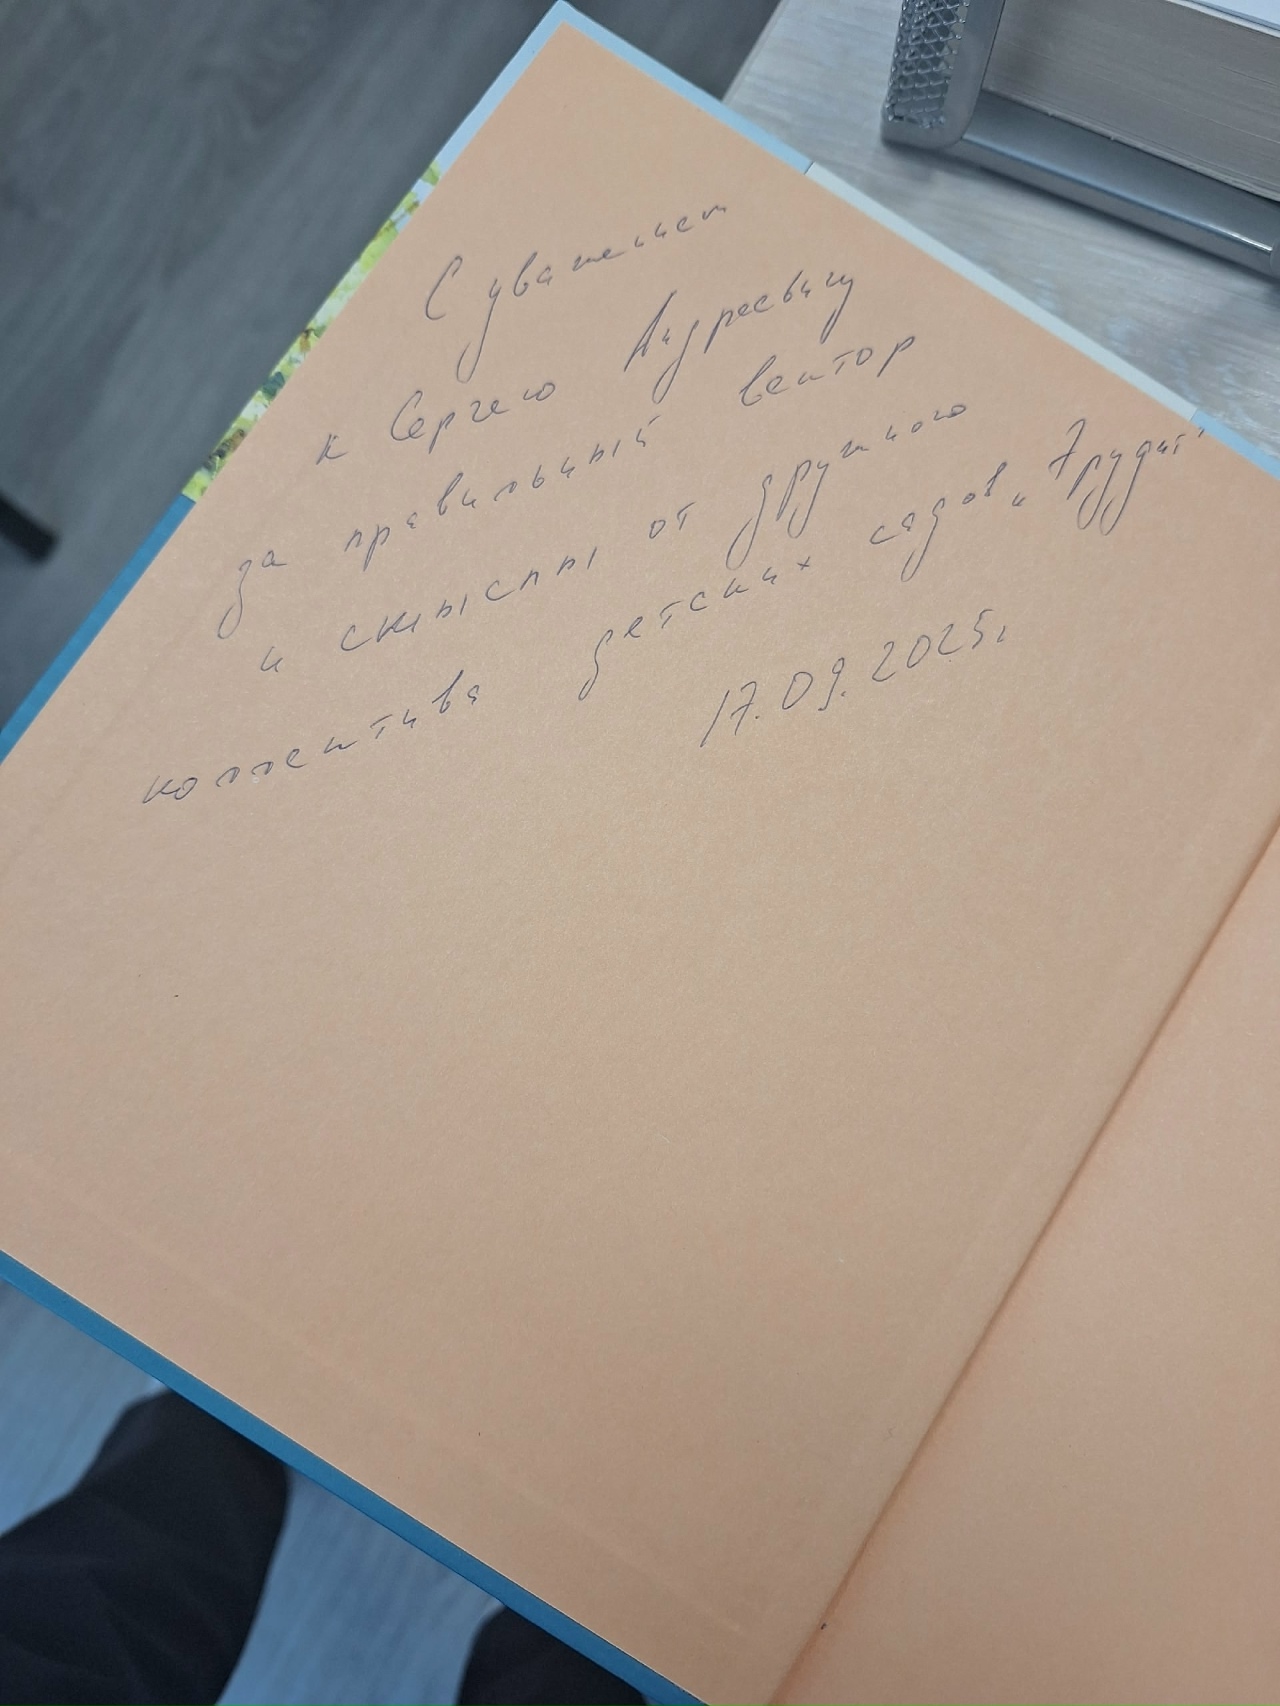 С уважением
к Сергею Андреевичу
за правильный вектор
и смыслы от дружного
коллектива детских садов „Эрудит"
17.09.2025г